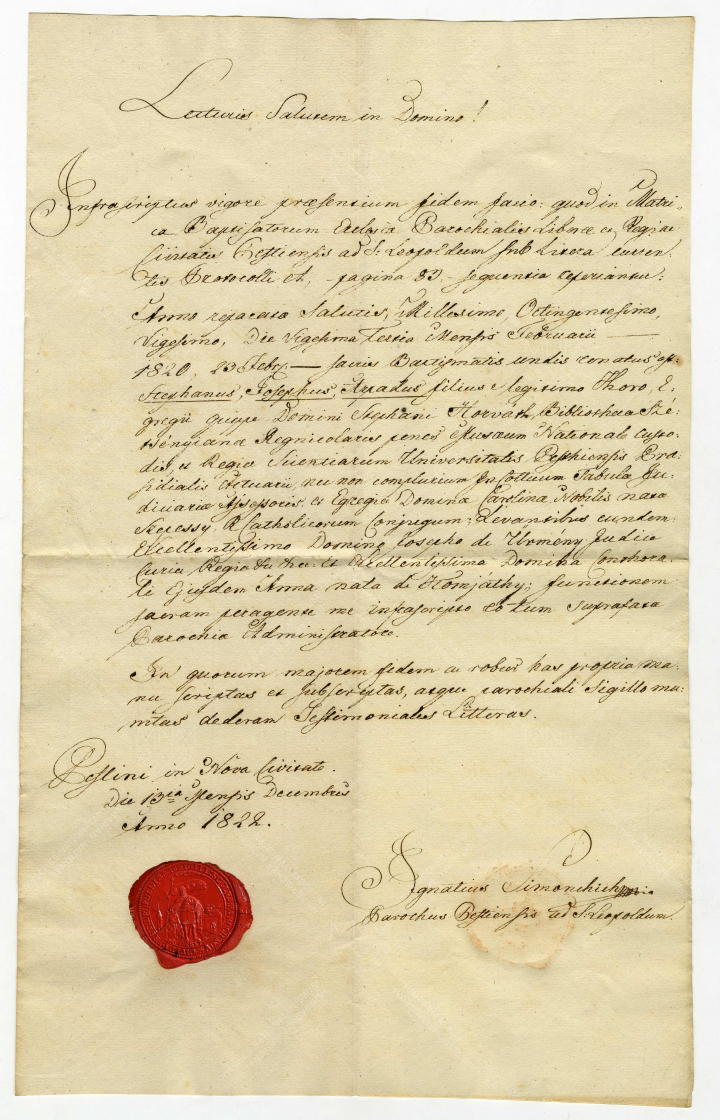 Lecturis Salutem in Domino!
Infrascriptus vigore præsentium fidem facio: quod in Matri-
ca Baptisatorum Eclesia Parochialis Liberæ ac Regiæ
Civitatis Pestiensis ad S. Leopoldum sub Litera curren-
tis Protocolli A, pagina 82 sequentia asserantur:
Anno reparatæ Salutis, Millesimo, Octingentesimo,
Vigesimo, Die Vigesima Tertia Mensis Februarii —
1820. 23 Febr. — sacris Baptismatis undis renatus est
Stephanus, Josephus, Arpadus filius legitimo Thoro, E-
gregii quippe Domini Stephani Horváth, Bibliotheca Szé-
csényiana Regnicolaris penes Musæum Nationale Custo-
dis, et Regiæ Scientiarum Universitatis Pesthiensis Præ-
sidialis Actuarii, nec non complurium In Cottuum Tabulæ Ju-
diciariæ Assessoris, et Egregiæ Dominæ Carolina Nobilis nata
R. Catholicorum Conjugum: Levantibus eundem:
Excellentissimo Domino Josepho de Ürmeny Judice
Curiæ Regiæ &c &c. et Excellentissima Domina Conthora-
li Ejusdem Anna nata de Komjáthy; functionem
sacram peragente me infrascripto eo tum suprafata
Parochia Administratore.
In quorum majorem fidem ac robur has propria ma-
nu scriptas et subscriptas, atque parochiali Sigillo mu-
nitas dederam Testimoniales Litteras.
Pestini in Nova Civitate.
Die 13ia Mensis Decembris
Anno 1822.
Ignatius Simonchich
Parochus Pestiensis ad S. Leopoldum.